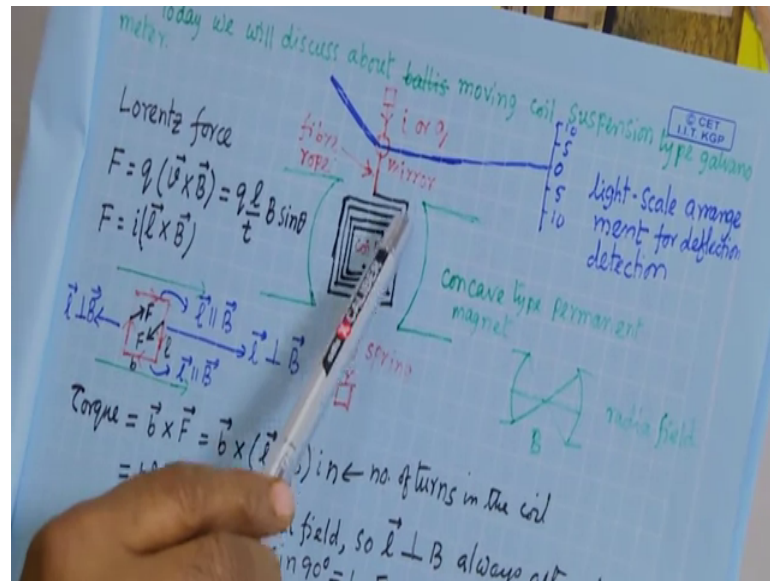 Today we will discuss about ballis moving coil suspension type galvano
meter.
© CET
I.I.T. KGP
Lorentz force
F = q(v⃗ × B⃗) = q l/t B sinθ
F = i(l⃗ × B⃗)
i or q
fibre
rope
mirror
10
5
0
5
10
light-scale arrange
ment for deflection
detection
concave type permanent
magnet
l⃗ ⊥ B⃗
l⃗ ∥ B⃗
F
F
l
b
l⃗ ∥ B⃗
l⃗ ⊥ B⃗
spring
B
radial field
Torque = b⃗ × F⃗ = b⃗ × (l⃗ ) in ← no. of turns in the coil
=
field, so l⃗ ⊥ B always
in 90° =